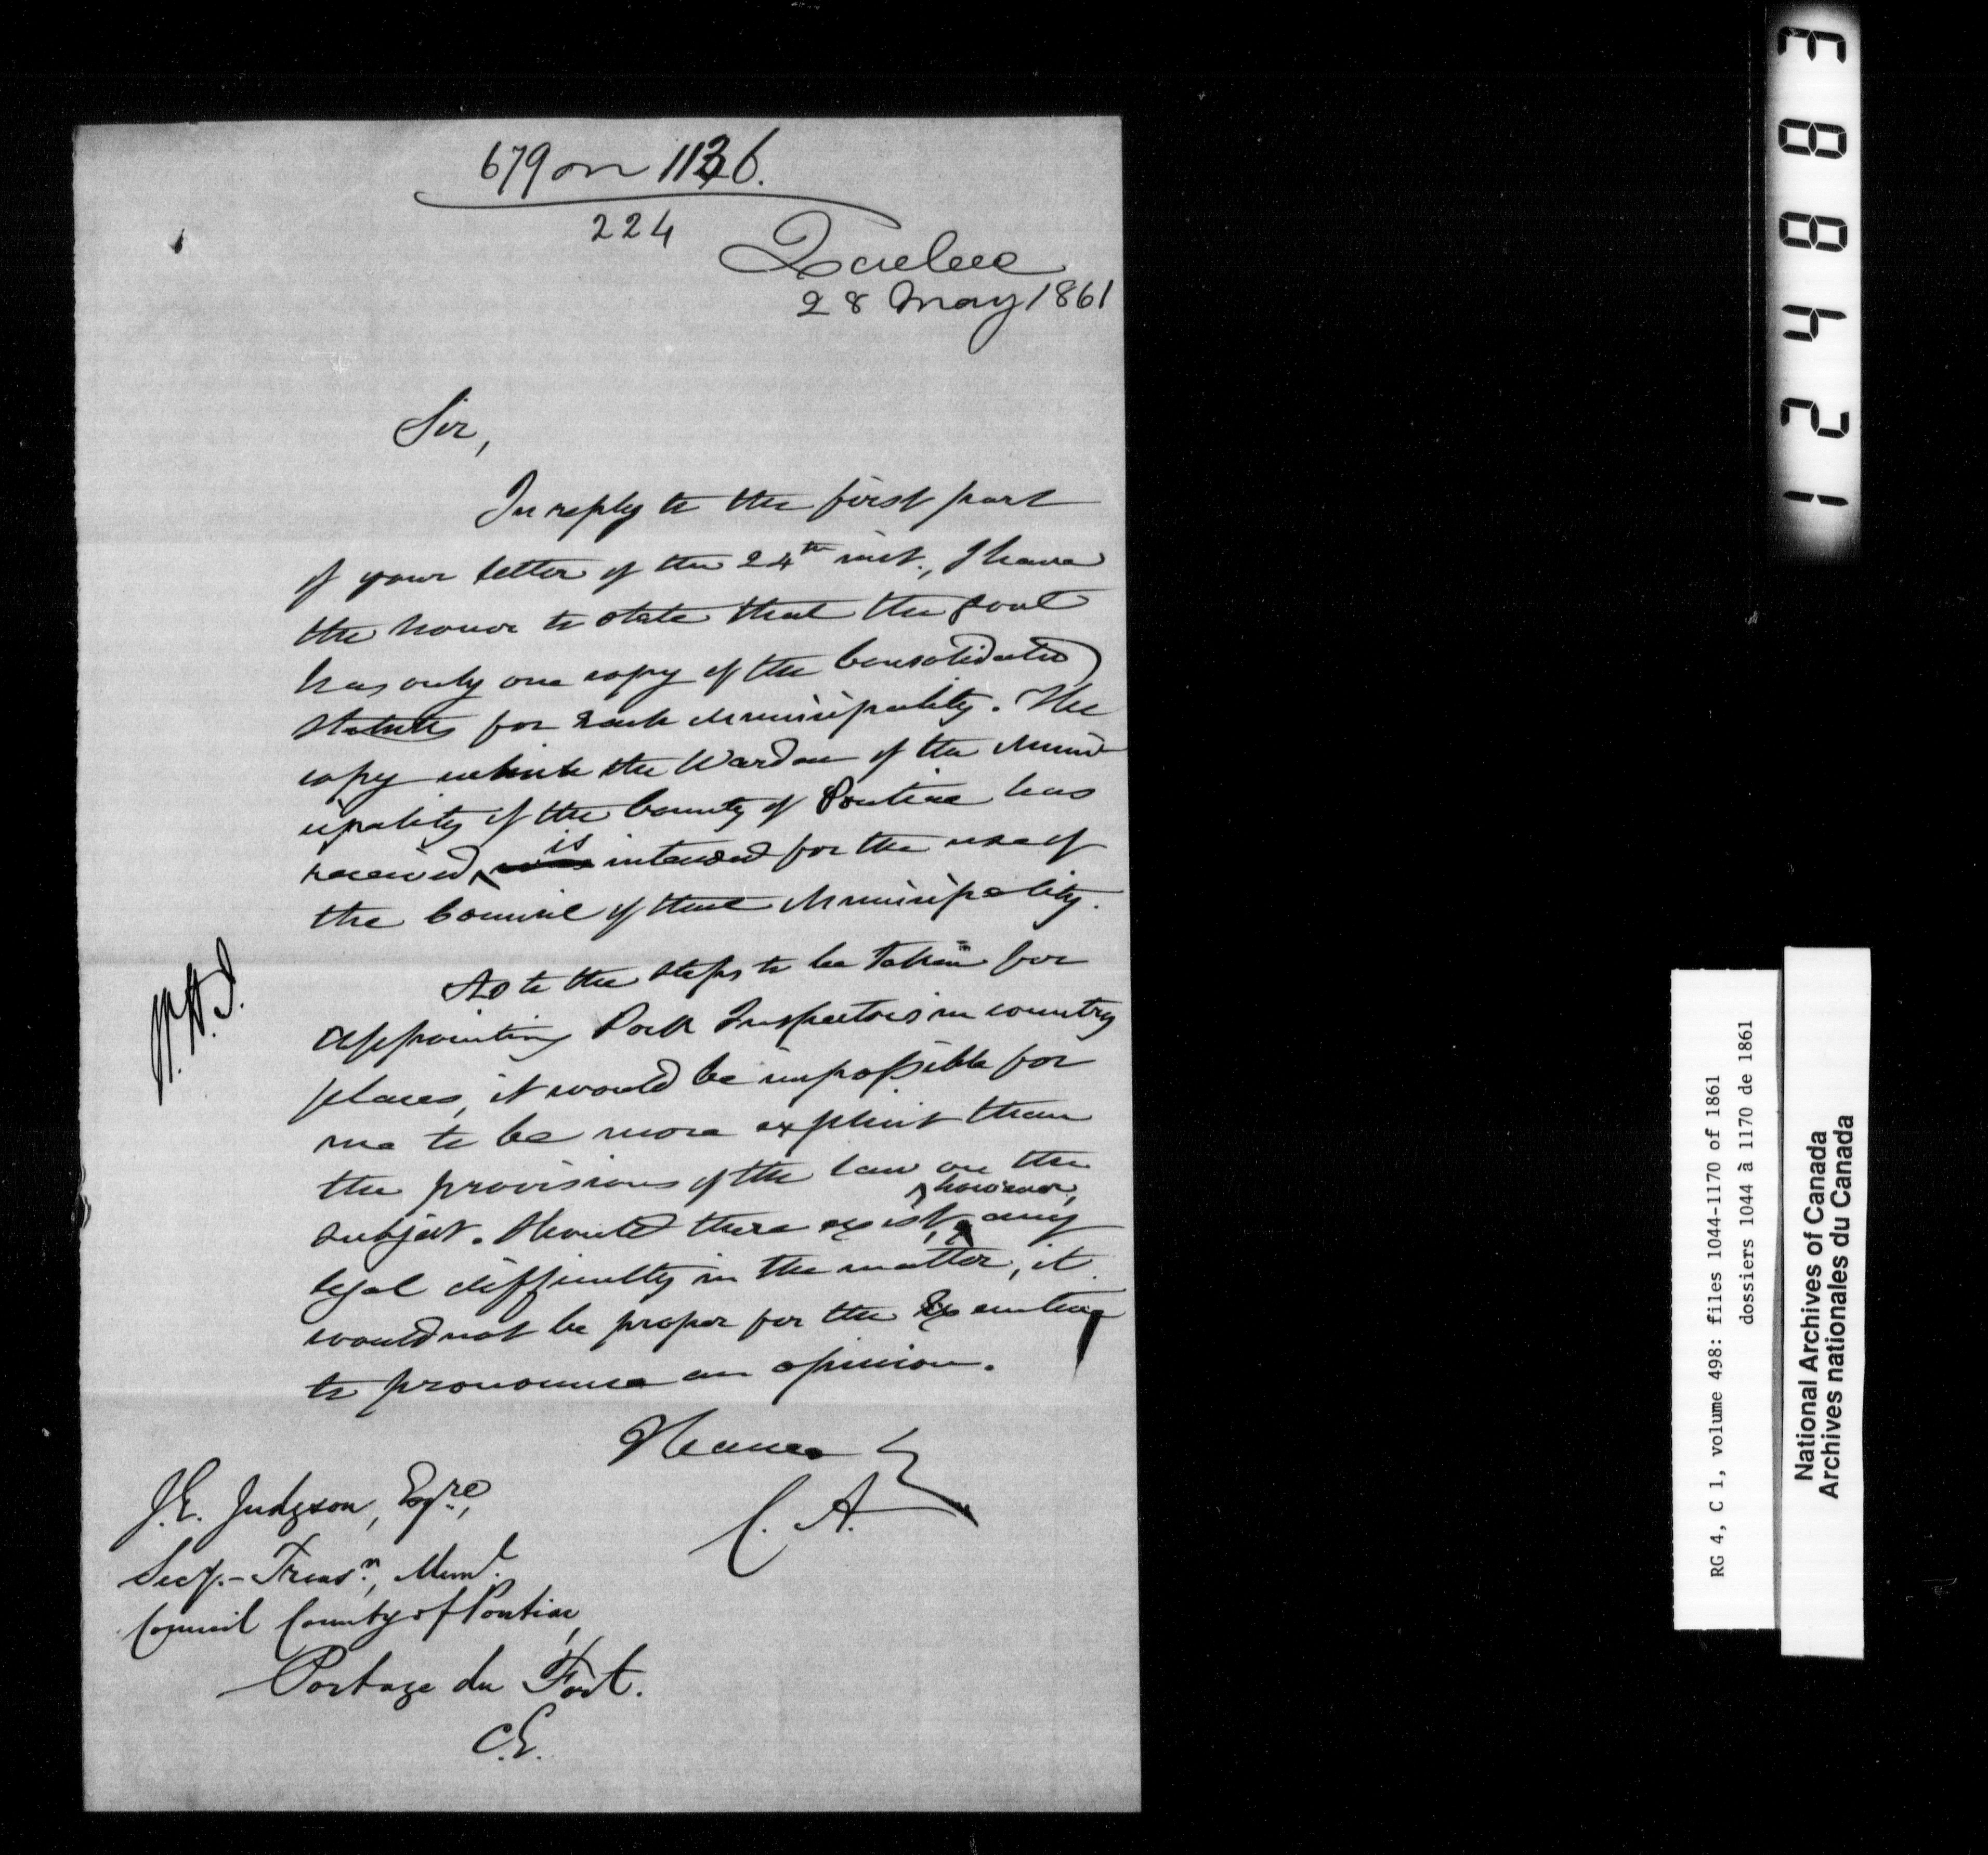 679 on 1136.
224
Quebec
28 May 1861
Sir,
In reply to the first part
of your letter of the 24th inst., I have
the honor to state that the Govt
has only one copy of the Consolidated
Statutes for each Municipality. The
copy which the Warden of the Muni-
cipality of the County of Pontiac has
received is intended for the use of
the Council of that Municipality.
As to the steps to be taken for
appointing Pork Inspectors in country
places, it would be impossible for
me to be more explicit than
the provisions of the law on the
subject. Should there exist, however, any
legal difficulty in the matter, it
would not be proper for the Executive
to pronounce an opinion.
I have
C. A.
W. H. J.
J.E. Judgson, Esqre,
Secy.-Treasr., Munl.
Council County of Pontiac,
Portage du Fort.
C.E.
12 4 8 8 3
RG 4, C 1, volume 498: files 1044-1170 of 1861
dossiers 1044 à 1170 de 1861
National Archives of Canada
Archives nationales du Canada